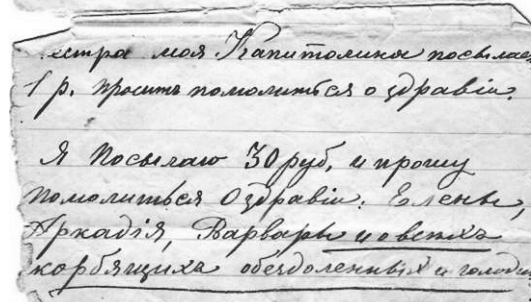 сестра моя Капитолина посылает
1 р. просить помолиться о здравіи.
Я посылаю 30 руб, и прошу
помолиться о здравіи: Елены,
Аркадія, Варвары и о всѣхъ
скорбящихъ обездоленныхъ и голодн